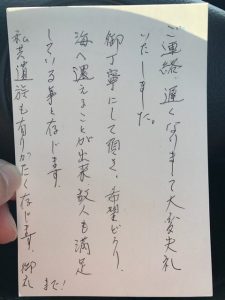 ご連絡遅くなりまして大変失礼
いたしました。
御丁寧にして頂き、希望どうり、
海へ還えすことが出来、故人も満足
している事と存じます。
私共遺族も有りがたく存じます。御礼
まで!